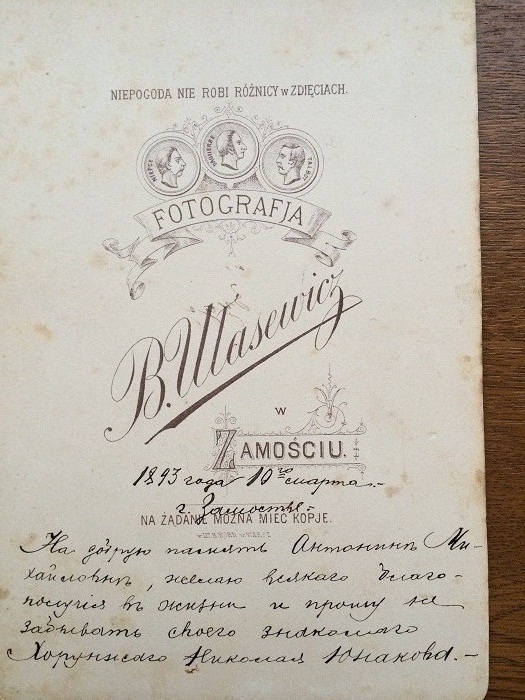 NIEPOGODA NIE ROBI RÓŻNICY w ZDIĘCIACH.
NIEPCE DAGUERRE TALBOT
FOTOGRAFJA
B. Ulasewicz
W
ZAMOŚCIU.
1893 года 10го марта.-
г. Замостье.-
NA ŻĄDANIE MOŻNA MIEĆ KOPJE.
На добрую память Антонинѣ Ми-
хайловнѣ, желаю всякаго благо-
получія въ жизни и прошу не
забывать своего знакомаго
Хорунжаго Николая Юшакова.-